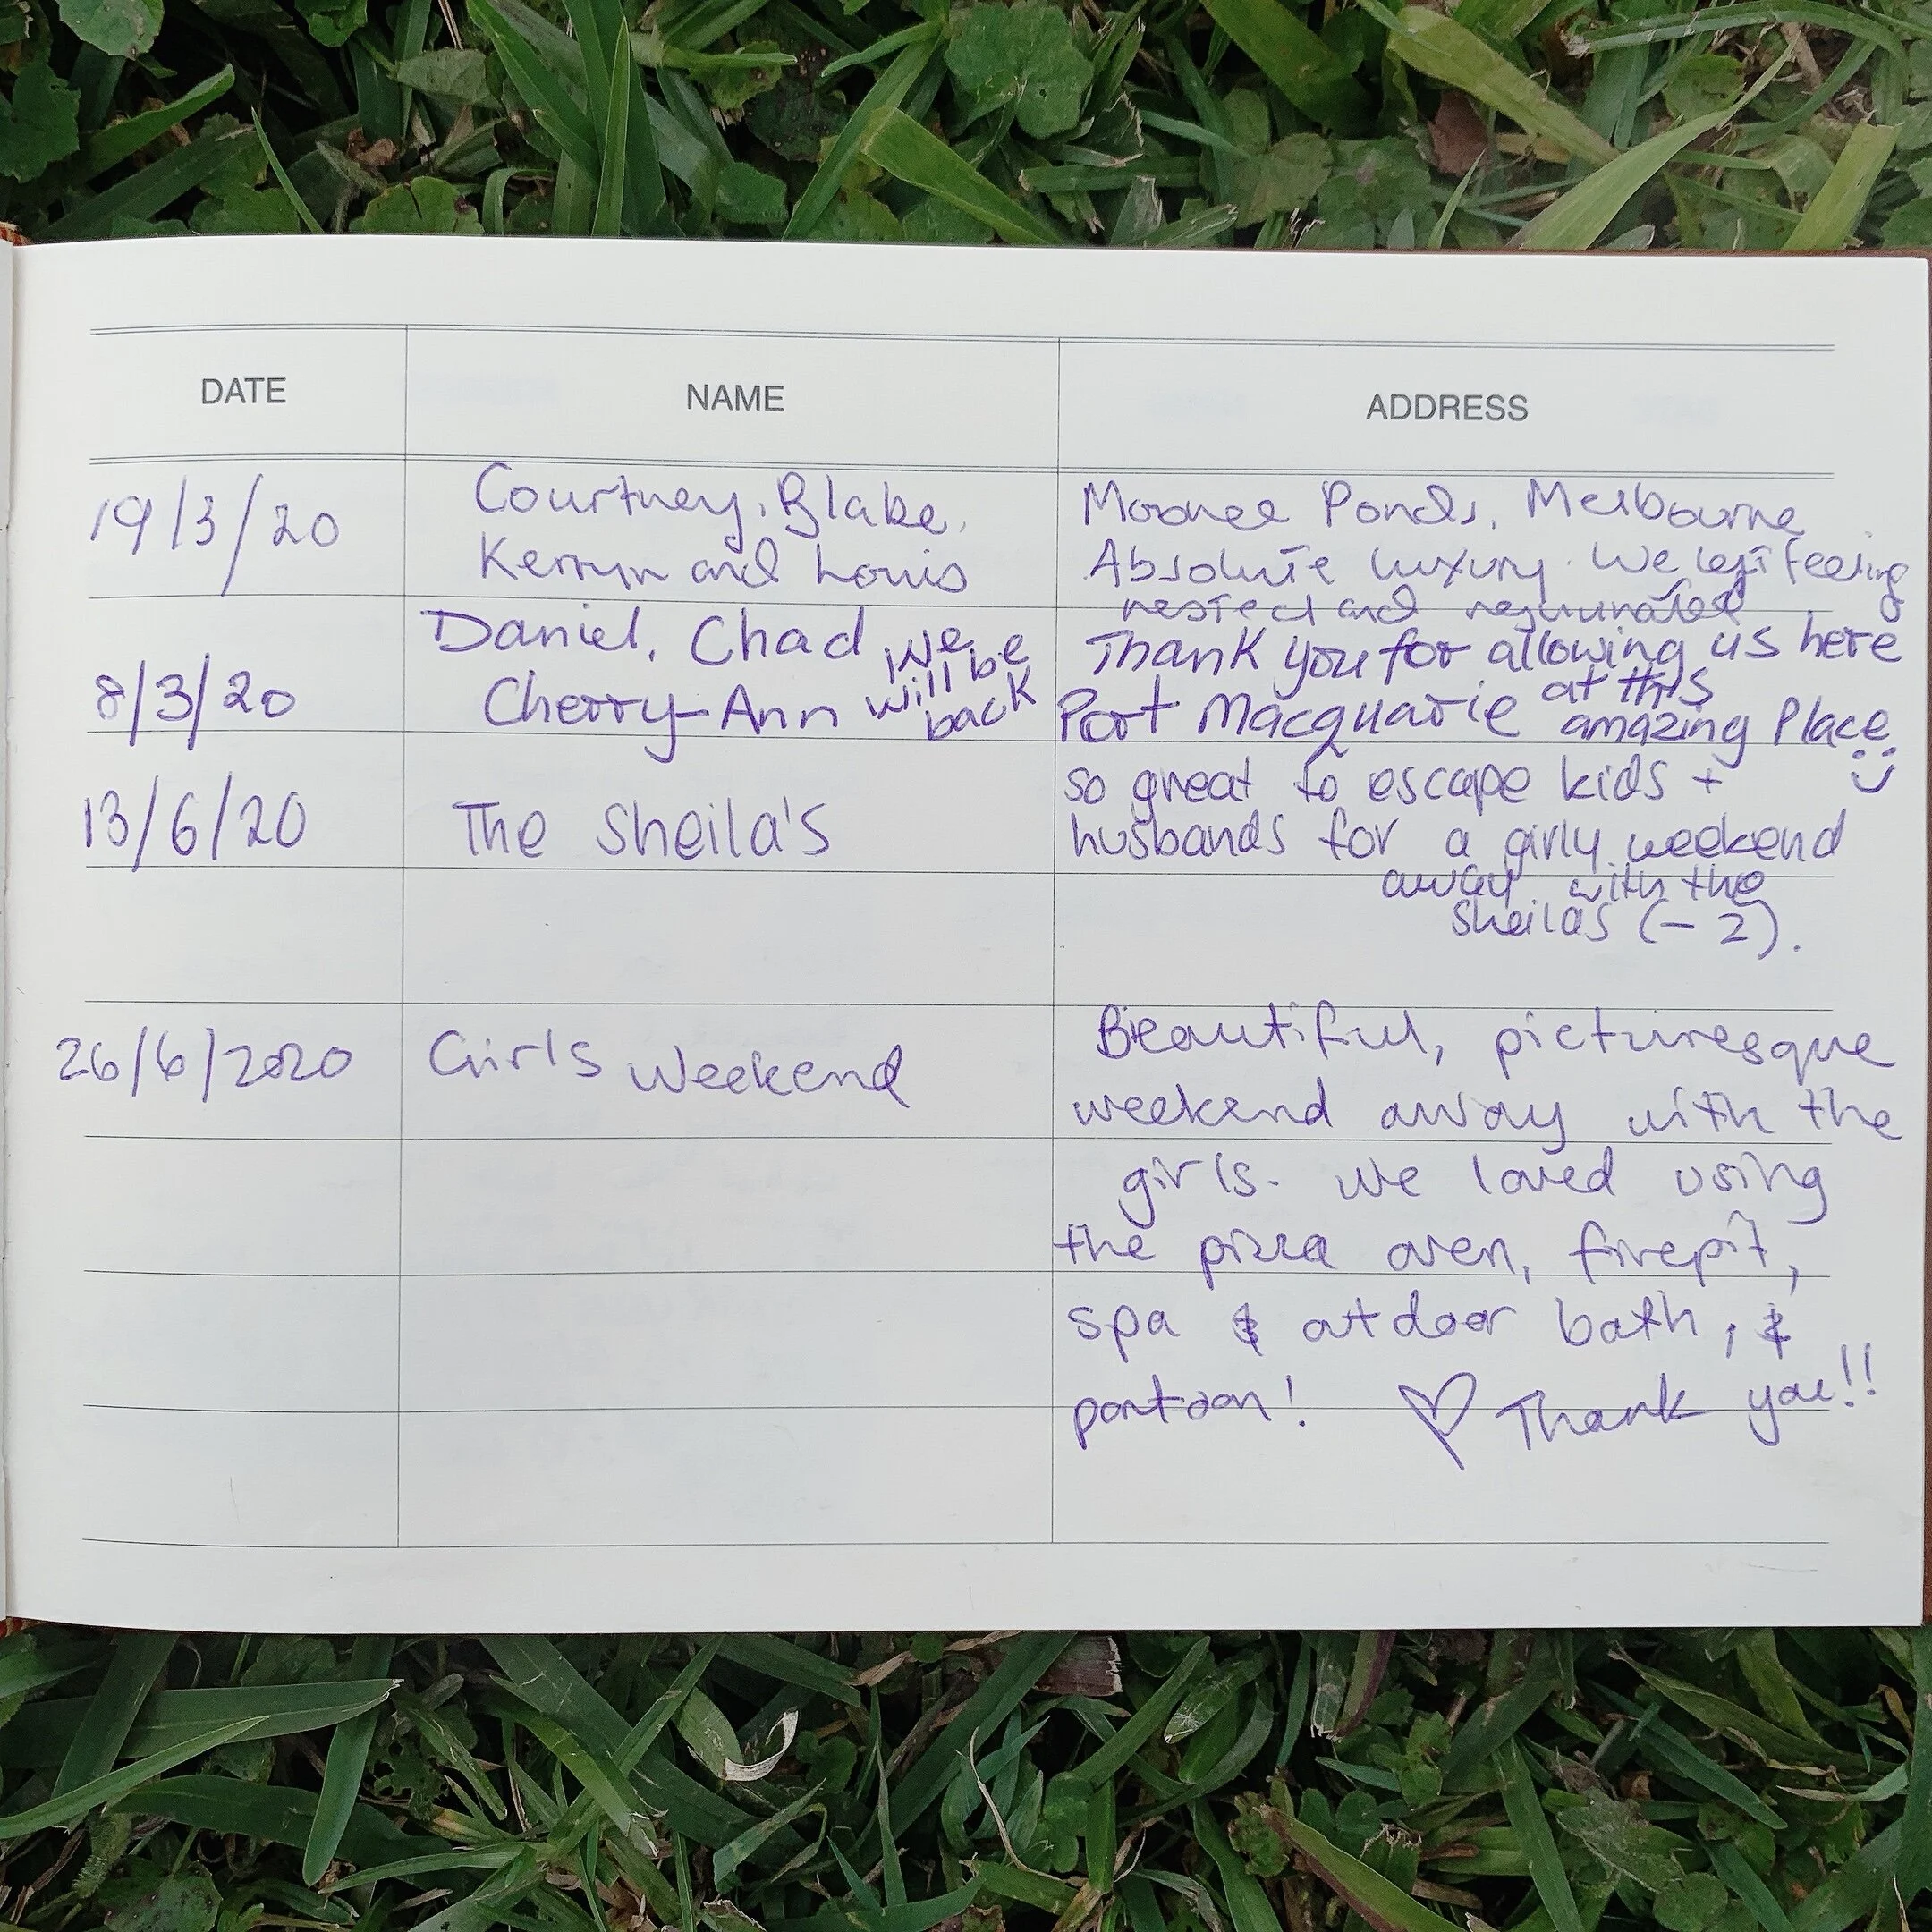 DATE NAME ADDRESS
19/3/20
Courtney, Blake,
Kerryn and Louis
Moonee Ponds, Melbourne
Absolute luxury. We left feeling
rested and rejuvinated
8/3/20
Daniel, Chad
Cherry-Ann
We
will be
back
Thank you for allowing us here
at this
Port Macquarie amazing Place
13/6/20
The Sheila's
so great to escape kids +
husbands for a girly weekend
away with the
sheilas (-2).
26/6/2020
Girls Weekend
Beautiful, picturesque
weekend away with the
girls. We loved using
the pizza oven, firepit,
spa & outdoor bath, &
pontoon! ♡ Thank you!!